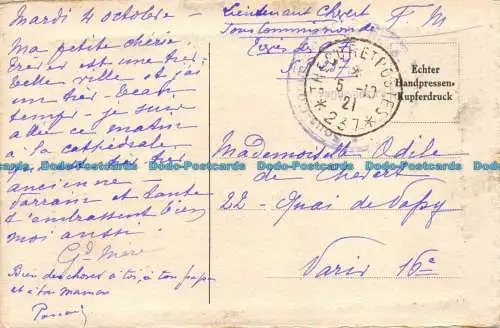 Mardi 4 octobre -
Ma petite chérie,
Trèves est une très
belle ville et j'ai
un très beau
temps - je suis
allée ce matin
à la cathédrale
très
ancienne
Parrain et tante
t'embrassent bien
moi aussi
Gd Mère
Bien des choses à toi, à ton papa
et à ta maman
Lieutenant
Sous Commission de
F. M
TRÉSOR ET POSTES
* 5 -10 21
* 237 *
Echter
Handpressen-
Kupferdruck
Mademoiselle Odile
de
22 - Quai de Passy
Paris 16e
Dodo-Postcards Dodo-Postcards Dodo-Postcards